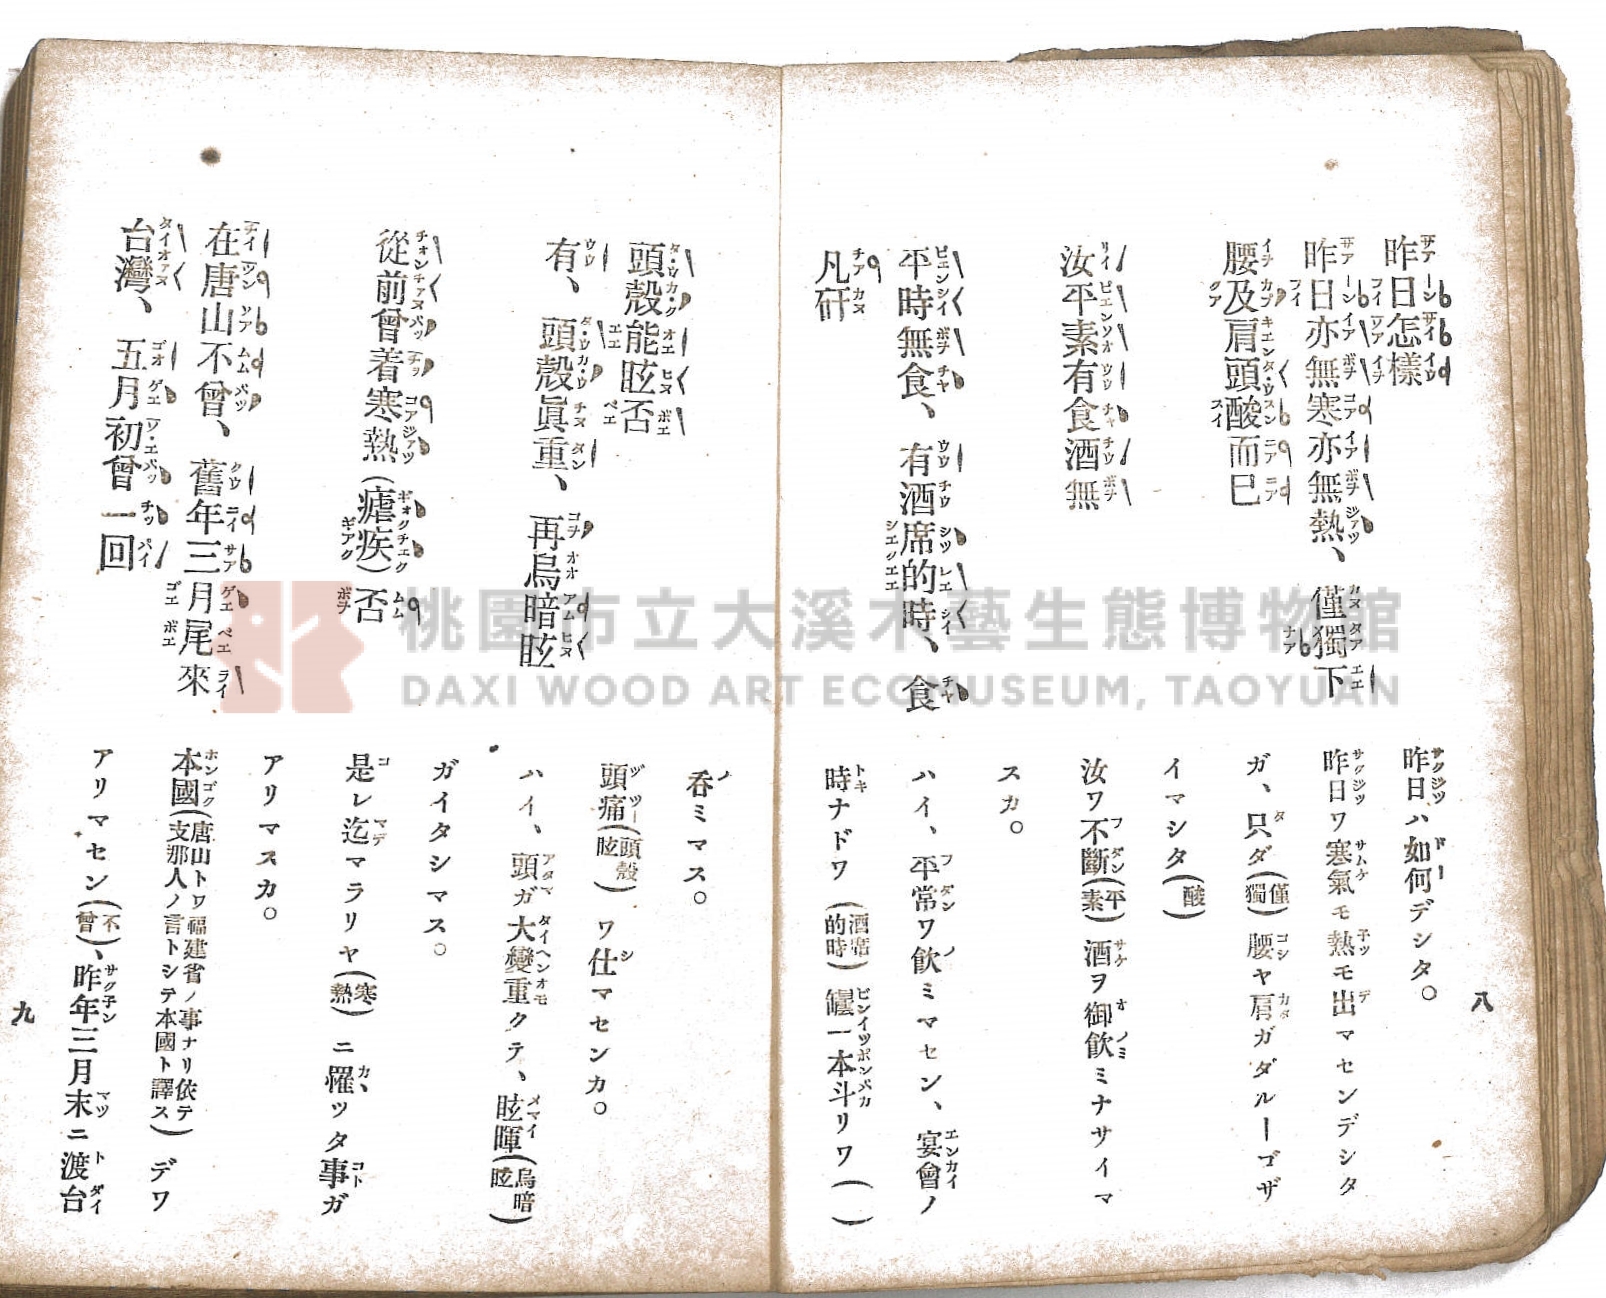 八
昨日怎樣
昨日亦無寒亦無熱、僅獨下
腰及肩頭酸而已
汝平素有食酒無
平時無食、有酒席的時、食
凡矸
昨日ハ如何デシタ。
昨日ワ寒氣モ熱モ出マセンデシタ
ガ、只ダ(僅獨)腰ヤ肩ガダルーゴザ
イマシタ(酸)
汝ワ不斷(平素)酒ヲ御飮ミナサイマ
スカ。
ハイ、平常ワ飮ミマセン、宴會ノ
時ナドワ(酒席的時)罎一本斗リワ(一)
頭殼能眩否
有、頭殼眞重、再烏暗眩
從前曾着寒熱(瘧疾)否
在唐山不曾、舊年三月尾來
台灣、五月初曾一回
呑ミマス。
頭痛(頭殼眩)ワ仕マセンカ。
ハイ、頭ガ大變重クテ、眩暉(烏暗眩)
ガイタシマス。
是レ迄マラリヤ(寒熱)ニ罹ッタ事ガ
アリマスカ。
本國(唐山トワ福建省ノ事ナリ依テ支那人ノ言トシテ本國ト譯ス)デワ
アリマセン(不曾)、昨年三月末ニ渡台
九
桃園市立大溪木藝生態博物館
DAXI WOOD ART ECOMUSEUM, TAOYUAN